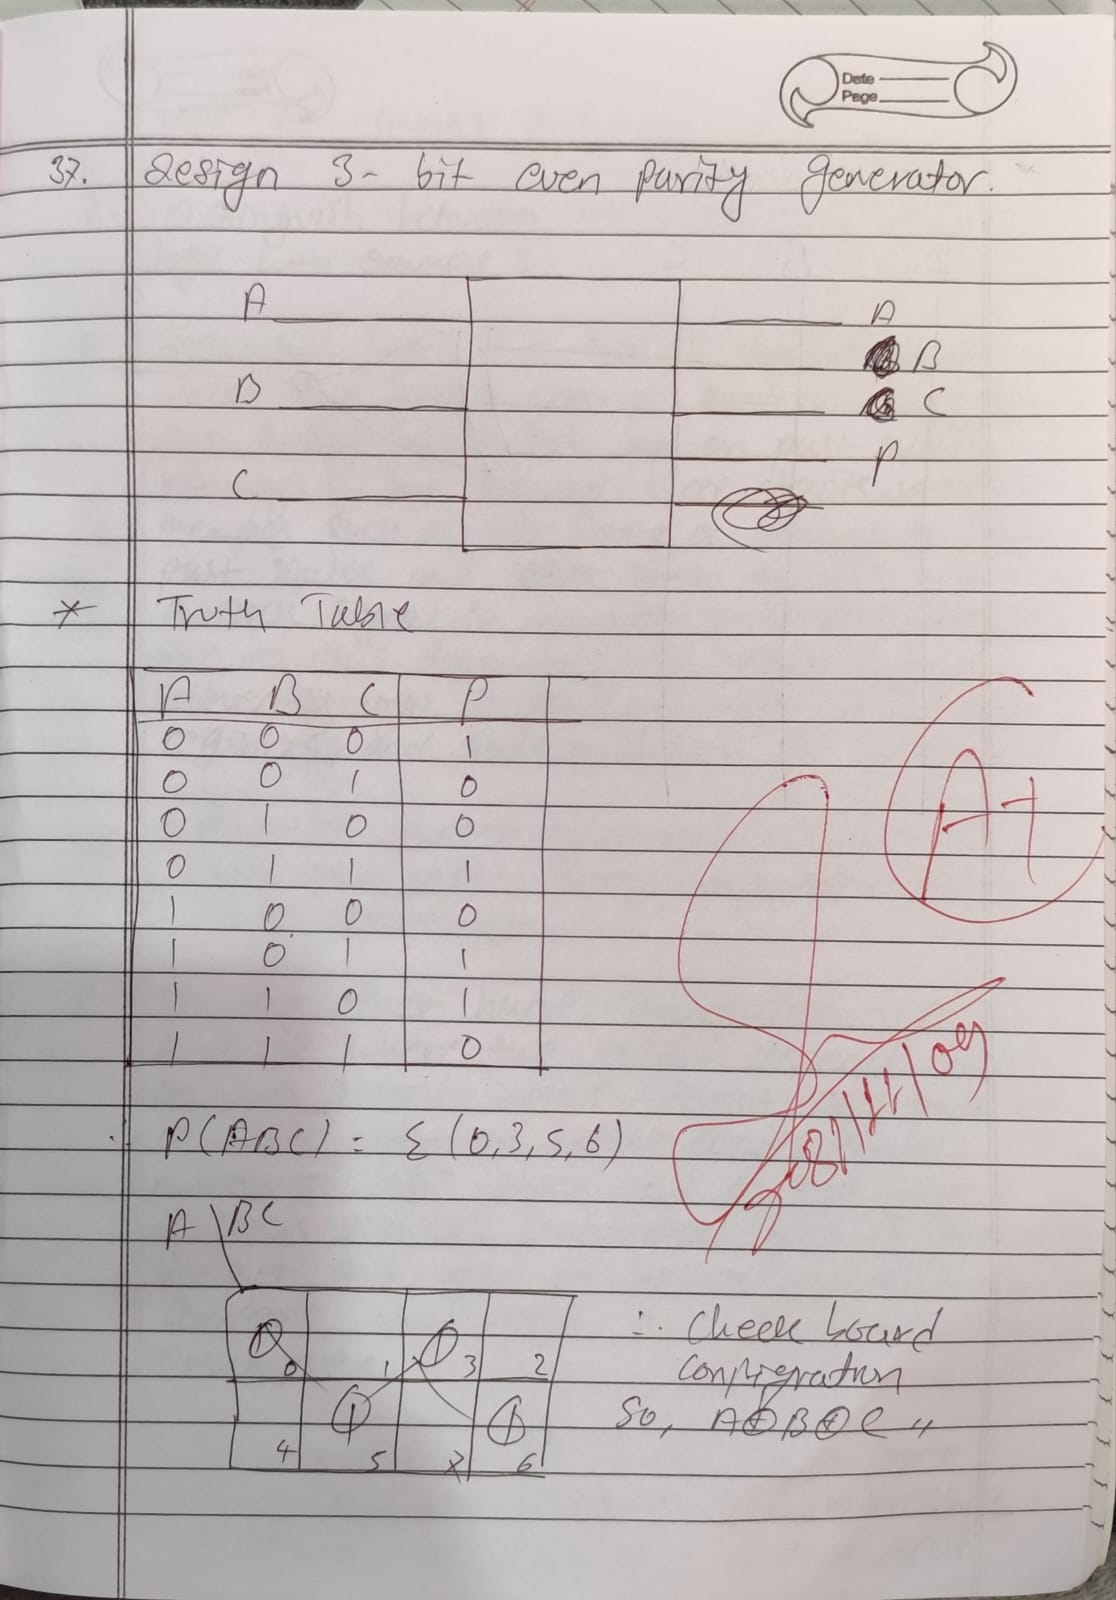 Date
Page
37. design 3-bit even parity generator.
A A
B B
C C
P
* Truth Table
A B C P
0 0 0 1
0 0 1 0
0 1 0 0
0 1 1 1
1 0 0 0
1 0 1 1
1 1 0 1
1 1 1 0
P(ABC) = Σ (0,3,5,6)
A \ BC
1 0 1 1 3 2
4 1 5 7 1 6
∴ Check board
configration
So, A⊕B⊕C "
A+
2081/11/09